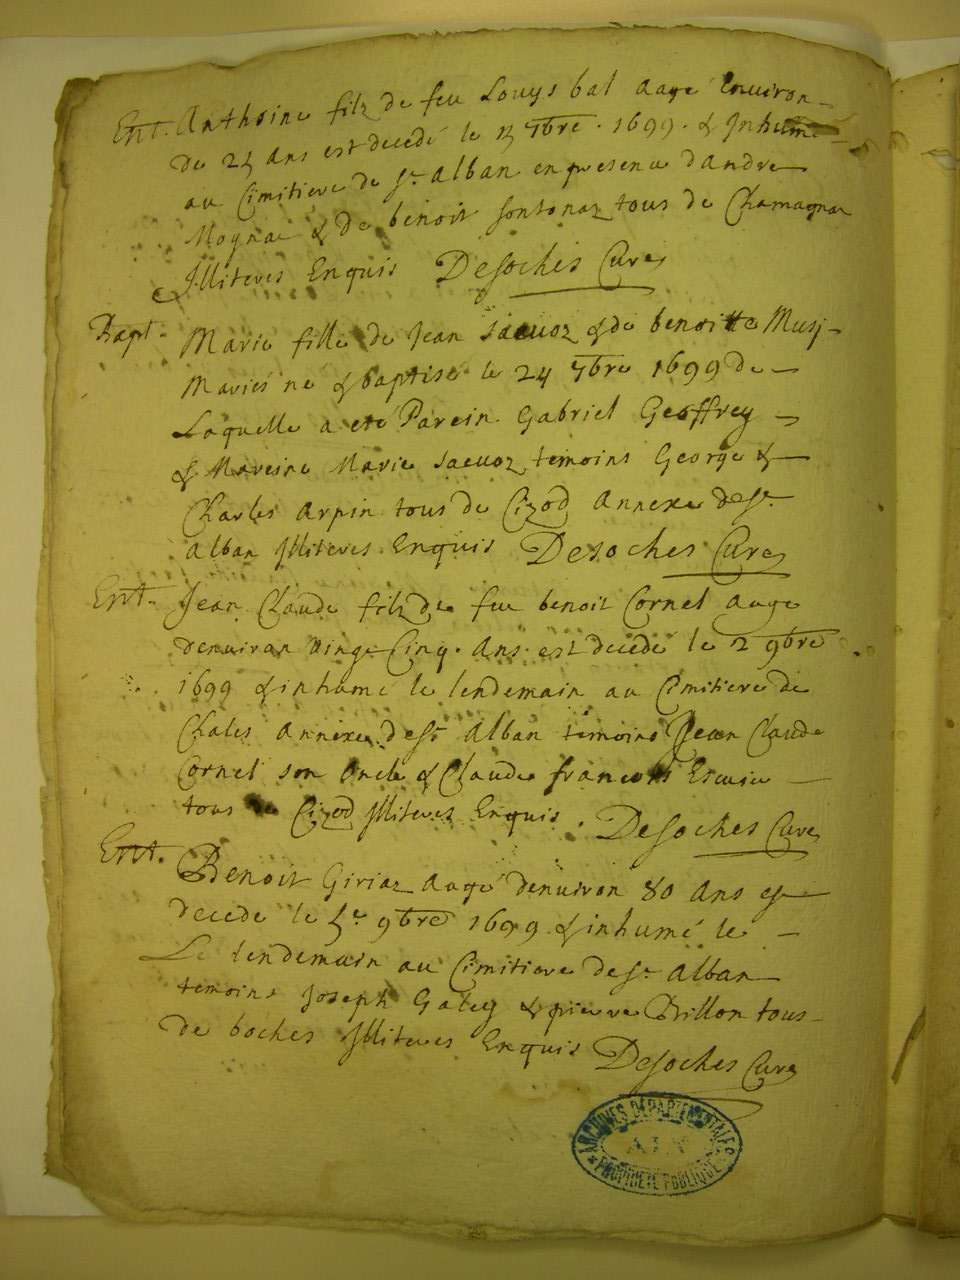 Ent. Anthoine filz de feu Louys bal aagé Environ
de 25 ans est decedé le 7bre. 1699. & Inhumé
au Cimitiere de St. alban en presence d'andre
Mognac & de benoit fontanaz tous de Chamagnac
Illiteres Enquis Desoches Curé
Bapt. Marie fille de Jean Sacuoz & de benoitte Musy
Mariés né & baptisé le 24 7bre 1699 de
Laquelle a eté Parein Gabriel Geoffrey
& Mareine Marie Sacuoz temoins George &
Charles Arpin tous de Cizod Annexe de St.
Alban Illiteres Enquis Desoches Curé
Ent. Jean Claude filz de feu benoit Cornet aagé
denuiron vingt Cinq. ans est decedé le 2 9bre
1699 & inhumé le lendemain au Cimitiere de
Chales annexe de St. Alban temoins Jean Claude
Cornet son oncle & Claude francois
tous de Cizod Illiteres Enquis. Desoches Curé
Ent. Benoit Giriaz Aagé denuiron 80 ans est
decedé le 9bre 1699 & inhumé le
Le lendemain au Cimitiere de St. alban
temoins Joseph Galey & pierre Brillon tous
de boches Illiteres Enquis Desoches Curé
ARCHIVES DÉPARTEMENTALES
AIN
PROPRIÉTÉ PUBLIQUE